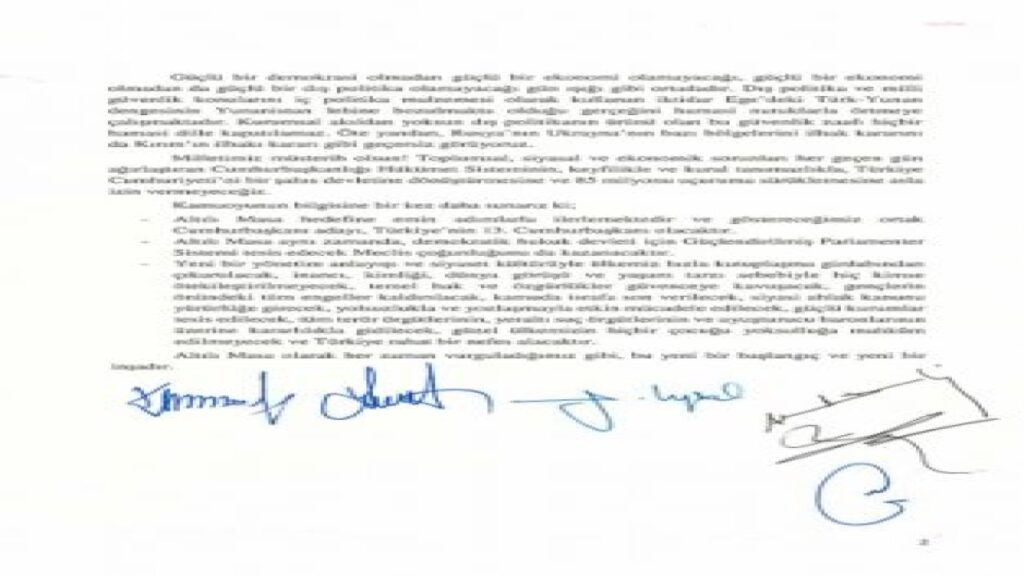 Güçlü bir demokrasi olmadan güçlü bir ekonomi olamayacağı, güçlü bir ekonomi
olmadan da güçlü bir dış politika olamayacağı gün ışığı gibi ortadadır. Dış politika ve milli
güvenlik konularını iç politika malzemesi olarak kullanan iktidar Ege'deki Türk-Yunan
dengesinin Yunanistan lehine bozulmakta olduğu gerçeğini hamasi nutuklarla örtmeye
çalışmaktadır. Kurumsal akıldan yoksun dış politikanın ürünü olan bu güvenlik zaafı hiçbir
hamasi dille kapatılamaz. Öte yandan, Rusya'nın Ukrayna'nın bazı bölgelerini ilhak kararını
da Kırım'ın ilhakı kararı gibi geçersiz görüyoruz.
Milletimiz müsterih olsun! Toplumsal, siyasal ve ekonomik sorunları her geçen gün
ağırlaştıran Cumhurbaşkanlığı Hükümet Sisteminin, keyfilikle ve kural tanımazlıkla, Türkiye
Cumhuriyeti'ni bir şahıs devletine dönüştürmesine ve 85 milyonu uçuruma sürüklemesine asla
izin vermeyeceğiz.
Kamuoyunun bilgisine bir kez daha sunarız ki;
- Altılı Masa hedefine emin adımlarla ilerlemektedir ve göstereceğimiz ortak
Cumhurbaşkanı adayı, Türkiye'nin 13. Cumhurbaşkanı olacaktır.
- Altılı Masa aynı zamanda, demokratik hukuk devleti için Güçlendirilmiş Parlamenter
Sistemi tesis edecek Meclis çoğunluğunu da kazanacaktır.
- Yeni bir yönetim anlayışı ve siyaset kültürüyle ülkemiz hızla kutuplaşma girdabından
çıkarılacak, inancı, kimliği, dünya görüşü ve yaşam tarzı sebebiyle hiç kimse
ötekileştirilmeyecek, temel hak ve özgürlükler güvenceye kavuşacak, gençlerin
önündeki tüm engeller kaldırılacak, kamuda israfa son verilecek, siyasi ahlak kanunu
yürürlüğe girecek, yolsuzlukla ve yozlaşmayla etkin mücadele edilecek, güçlü kurumlar
tesis edilecek, tüm terör örgütlerinin, yeraltı suç örgütlerinin ve uyuşturucu baronlarının
üzerine kararlılıkla gidilecek, güzel ülkemizin hiçbir çocuğu yoksulluğa mahkûm
edilmeyecek ve Türkiye rahat bir nefes alacaktır.
Altılı Masa olarak her zaman vurguladığımız gibi, bu yeni bir başlangıç ve yeni bir
inşadır.
2